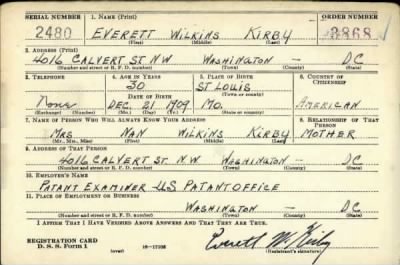 SERIAL NUMBER 1. NAME (Print) ORDER NUMBER
2480 EVERETT WILKINS KIRBY 3868
(First) (Middle) (Last)
2. ADDRESS (Print)
4016 CALVERT ST NW WASHINGTON — DC
(Number and street or R. F. D. number) (Town) (County) (State)
3. TELEPHONE 4. AGE IN YEARS 5. PLACE OF BIRTH 6. COUNTRY OF CITIZENSHIP
30 ST LOUIS
DATE OF BIRTH (Town or county)
None DEC. 21 1909 MO. AMERICAN
(Exchange) (Number) (Mo.) (Day) (Yr.) (State or country)
7. NAME OF PERSON WHO WILL ALWAYS KNOW YOUR ADDRESS 8. RELATIONSHIP OF THAT PERSON
MRS NAN WILKINS KIRBY MOTHER
(Mr., Mrs., Miss) (First) (Middle) (Last)
9. ADDRESS OF THAT PERSON
4016 CALVERT ST. N.W. WASHINGTON — DC
(Number and street or R. F. D. number) (Town) (County) (State)
10. EMPLOYER'S NAME
PATANT EXAMINER U.S PATANT OFFICE
11. PLACE OF EMPLOYMENT OR BUSINESS
WASHINGTON — DC
(Number and street or R. F. D. number) (Town) (County) (State)
I AFFIRM THAT I HAVE VERIFIED ABOVE ANSWERS AND THAT THEY ARE TRUE.
REGISTRATION CARD
D. S. S. Form 1 (over) 16—17105
Everett W. Kirby
(Registrant's signature)